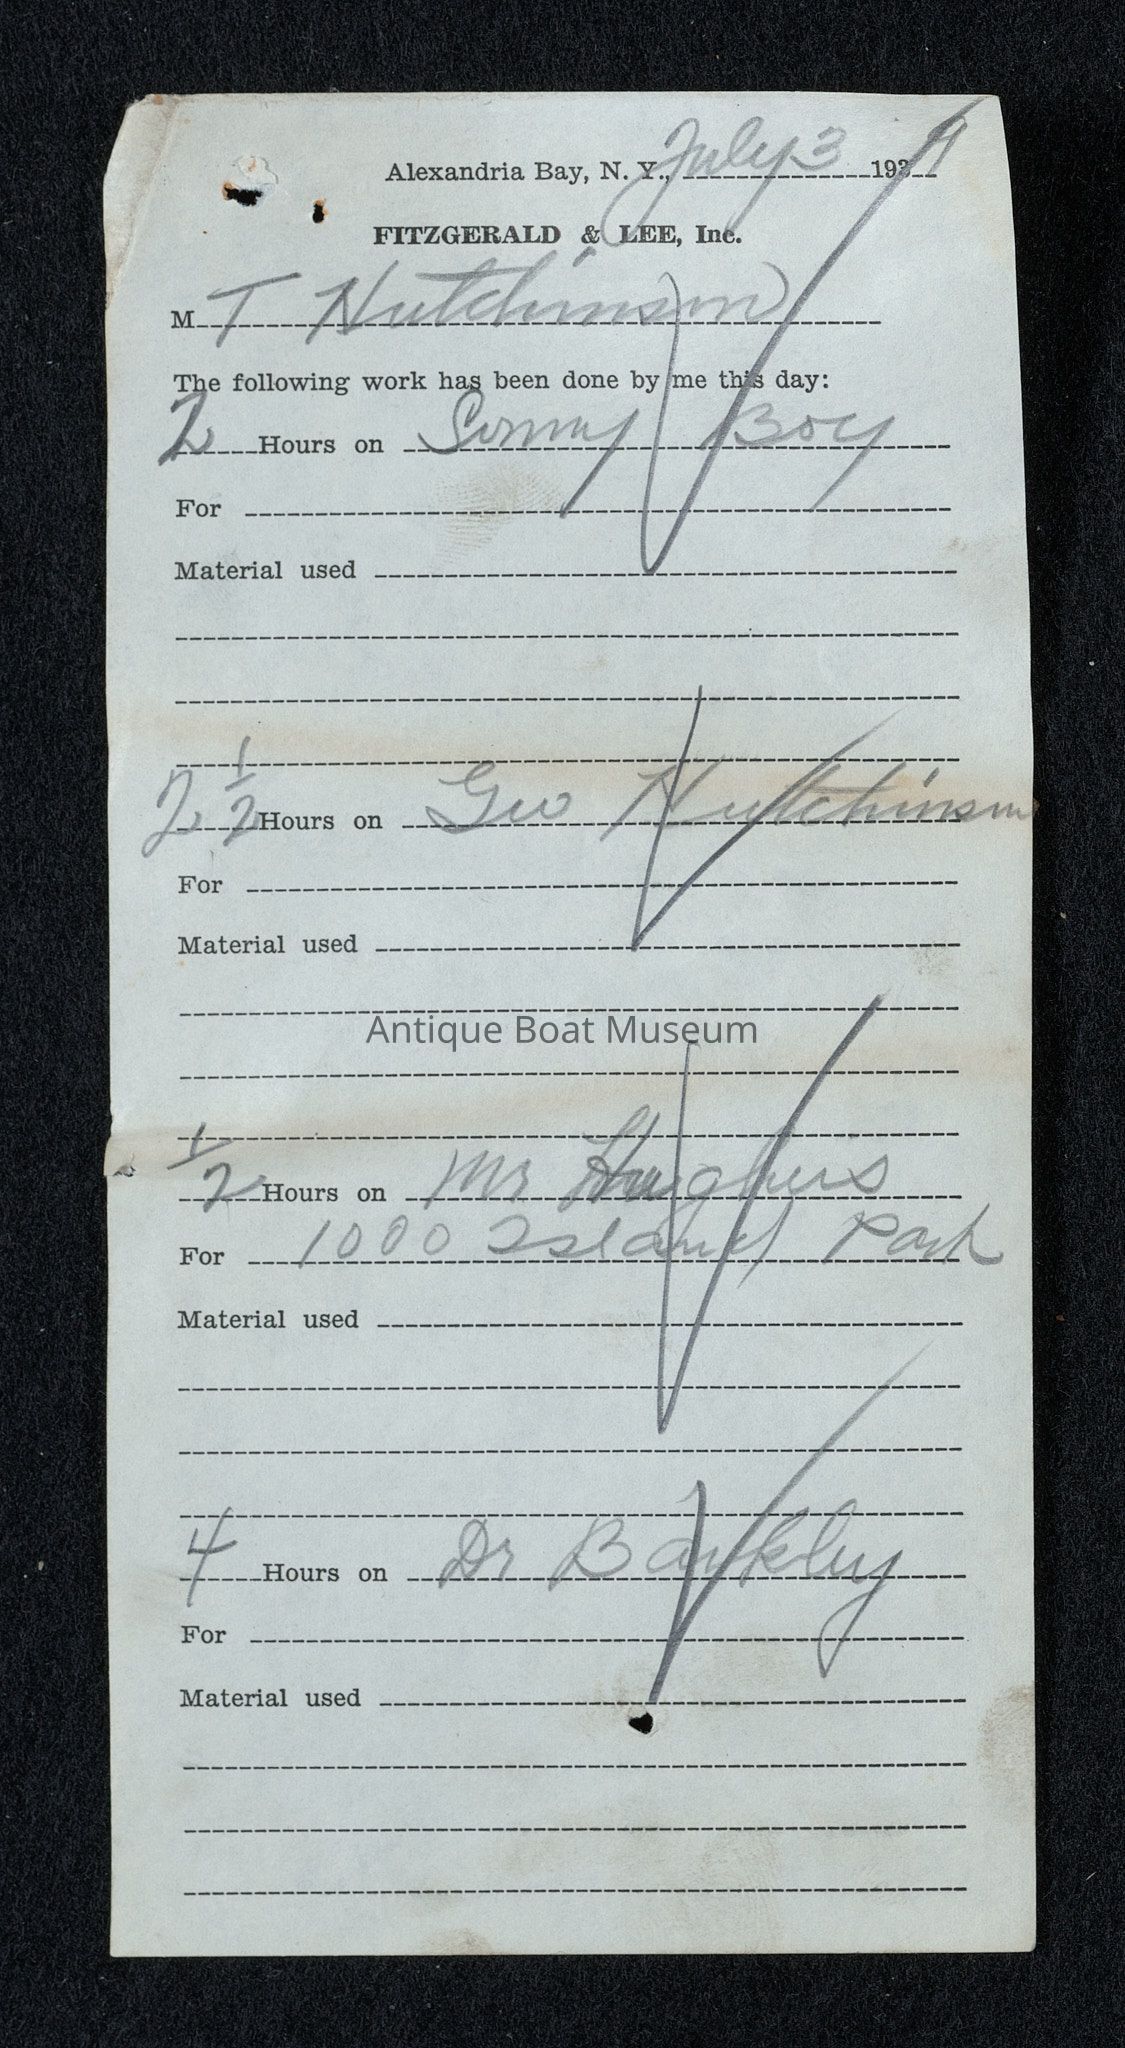 Alexandria Bay, N. Y., July 3 193
FITZGERALD & LEE, Inc.
M T Hutchinson
The following work has been done by me this day:
2 Hours on Sonny Boy
For
Material used
2 1/2 Hours on Geo Hutchinson
For
Material used
Antique Boat Museum
1/2 Hours on Mr Hughes
For 1000 Island Park
Material used
4 Hours on Dr Barkley
For
Material used